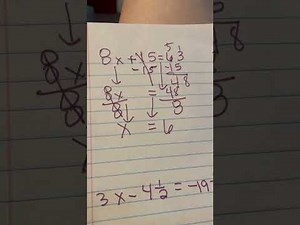 8x + 15 = 63
- 15 - 15
48
8x = 48
8 8
x = 6
3x - 4 1/2 = -19